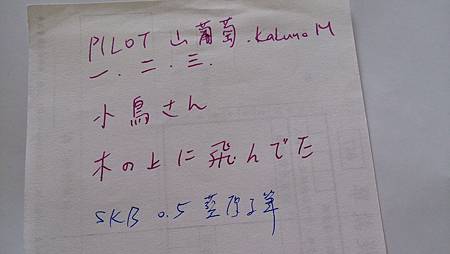 PILOT 山葡萄.Kakuno M
一.二.三.
小鳥さん
木の上に飛んでた
SKB 0.5 藍原子筆